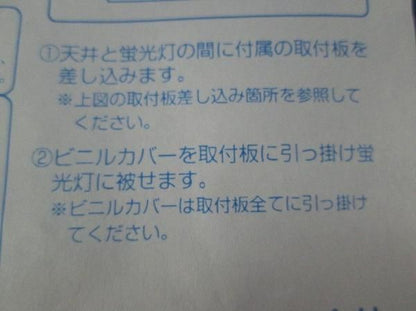 ①天井と蛍光灯の間に付属の取付板を
差し込みます。
※上図の取付板差し込み箇所を参照して
ください。
②ビニルカバーを取付板に引っ掛け蛍
光灯に被せます。
※ビニルカバーは取付板全てに引っ掛け
てください。